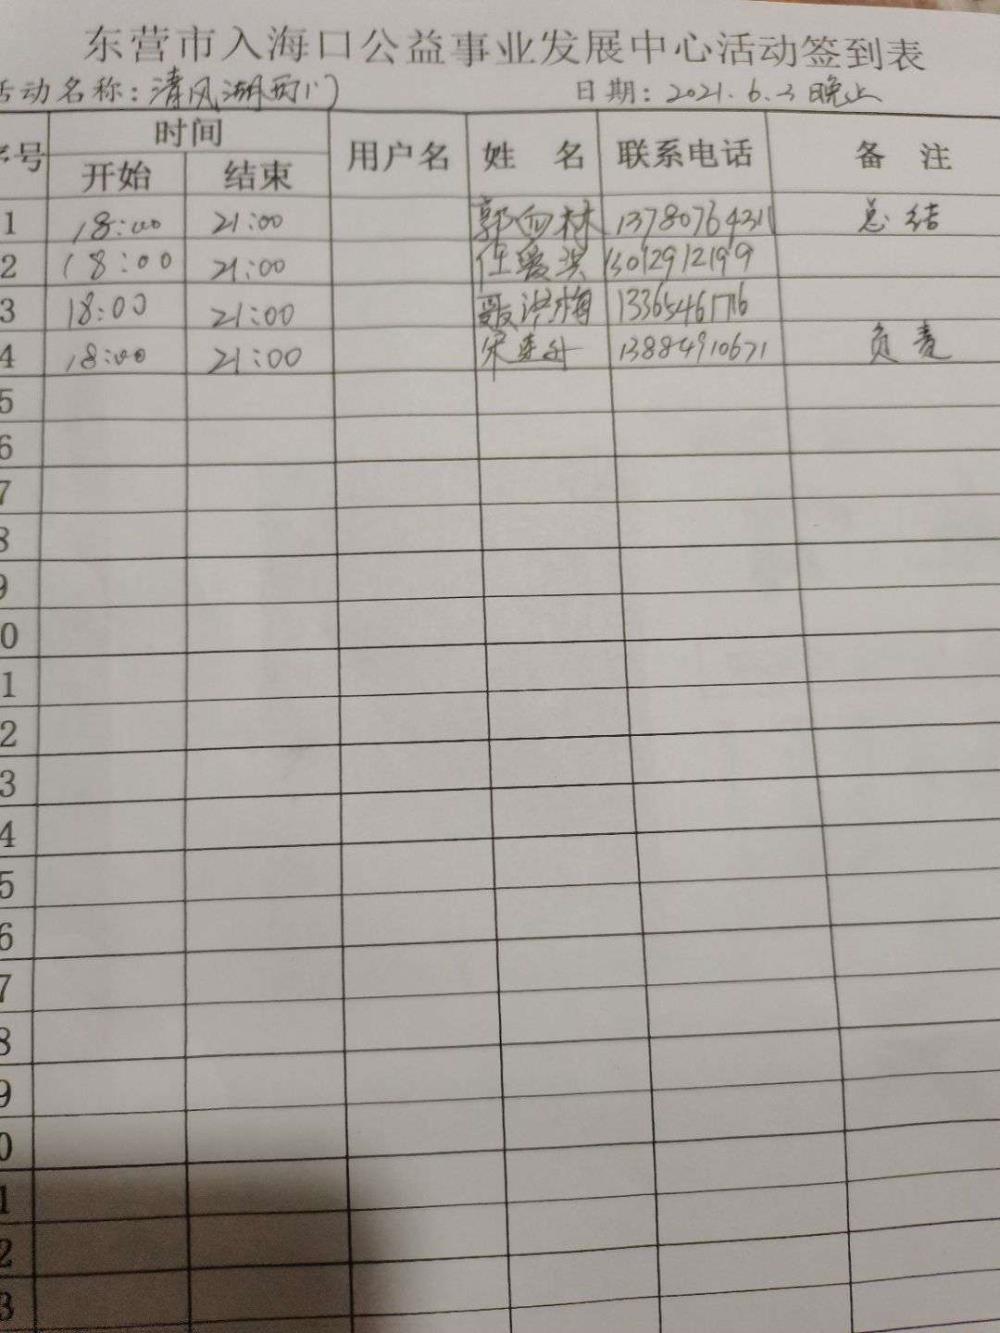 东营市入海口公益事业发展中心活动签到表
活动名称：清风湖西门 日期：2021.6.3晚上
序号 时间 用户名 姓 名 联系电话 备 注
开始 结束
1 18:00 21:00 郭向林 13780764311 总结
2 18:00 21:00 任爱滨 13012912199
3 18:00 21:00 聂洪梅 13365461716
4 18:00 21:00 宋连升 13884910671 负责
5
6
7
8
9
0
1
2
3
4
5
6
7
8
9
0
1
2
3